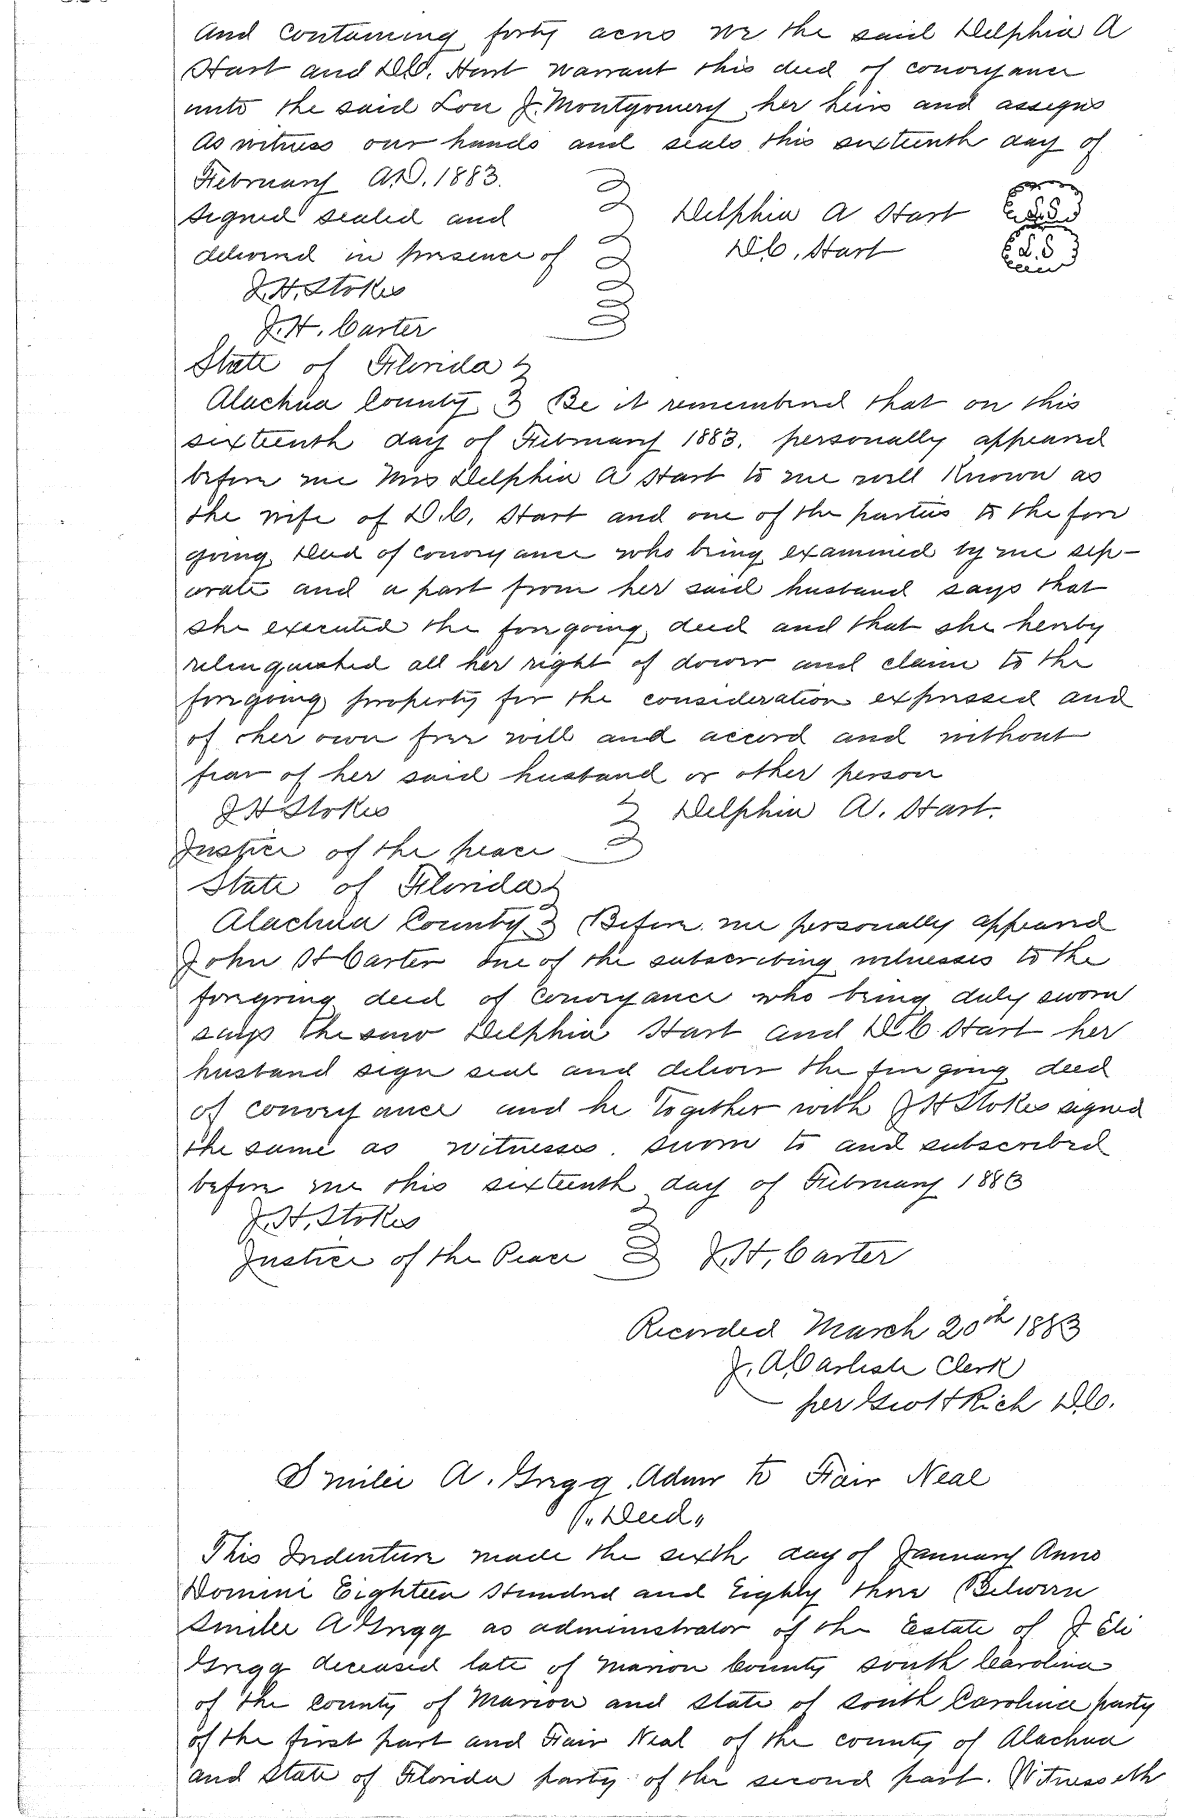 and containing forty acres we the said Delphia A
Hart and D.C. Hart warrant this deed of conveyance
unto the said Lou J. Montgomery her heirs and assigns
As witness our hands and seals this sixteenth day of
February A.D. 1883.
Signed sealed and
delivered in presence of
Delphia A Hart L.S.
D.C. Hart L.S
J.H. Stokes
J.H. Carter
State of Florida
Alachua County Be it remembered that on this
sixteenth day of February 1883. personally appeared
before me Mrs Delphia A Hart to me well Known as
the wife of D.C. Hart and one of the parties to the fore
going Deed of conveyance who being examined by me sep-
erate and a part from her said husband says that
she executed the foregoing deed and that she hereby
relinquished all her right of dower and claim to the
foregoing property for the consideration expressed and
of her own free will and accord and without
fear of her said husband or other person
J H Stokes Delphia A. Hart.
Justice of the peace
State of Florida
Alachua County Before me personally appeared
John H Carter one of the subscribing witnesses to the
foregoing deed of conveyance who being duly sworn
says he saw Delphia Hart and D C Hart her
husband sign seal and deliver the foregoing deed
of conveyance and he together with J H Stokes signed
the same as witnesses. sworn to and subscribed
before me this sixteenth day of February 1883
J.H. Stokes
Justice of the Peace J.H. Carter
Recorded March 20th 1883
J. A. Carlisle Clerk
per Geo H Rich D.C.
Smilie A. Gregg Admr to Fair Neal
"Deed"
This Indenture made the sixth day of January Anno
Domini Eighteen Hundred and Eighty three Between
Smilie A Gregg as administrator of the Estate of J Eli
Gregg deceased late of Marion County South Carolina
of the county of Marion and state of South Carolina party
of the first part and Fair Neal of the county of Alachua
and State of Florida party of the second part. Witnesseth